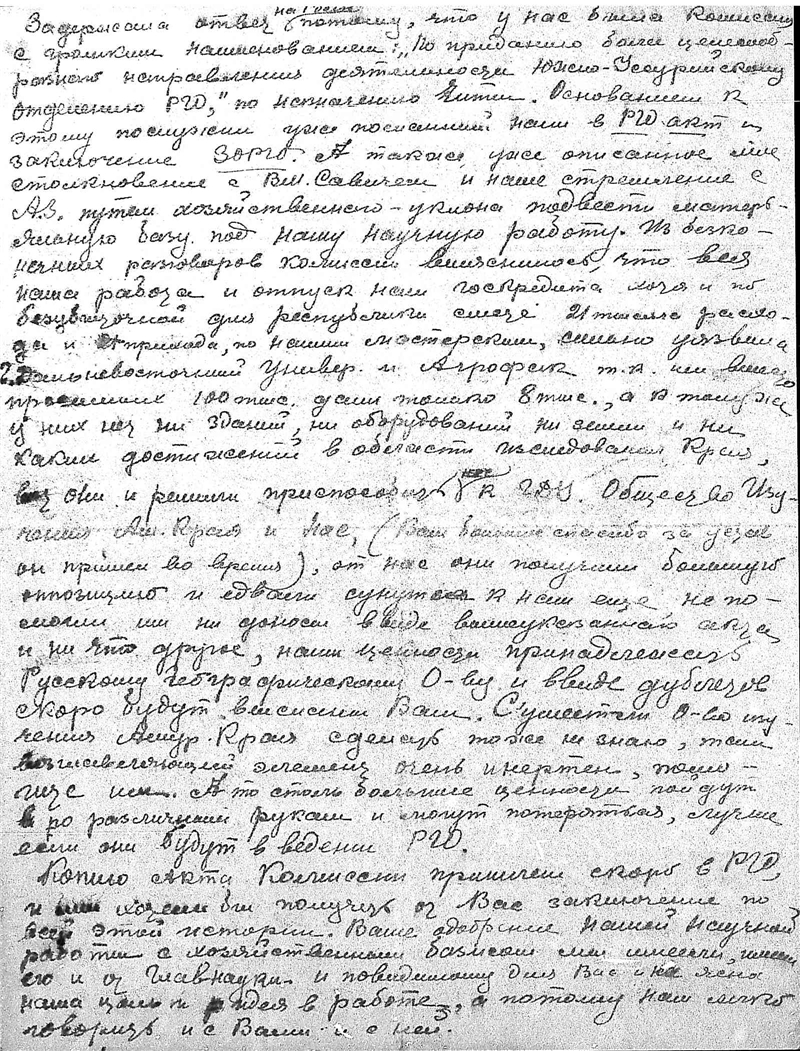 Задержала ответ потому, что у нас была Комиссия
с громким наименованием: „По приданию более целесооб-
разного направления деятельности Южно-Уссурийскому
Отделению РГО," по назначению Читы. Основанием к
этому послужил уже посланный нами в РГО акт и
заключение ЗОРГО. А также уже описанное мне
столкновение с Вл. Савичем и наше стремление с
А.З. путем хозяйственного-уклона подвести матерь-
яльную базу под нашу научную работу. Из беско-
нечных разговоров комиссии выяснилось, что вся
наша работа и отпуск нам госкредита хотя и по
безубыточной для республики смете 21 тысяча расхо-
да и прихода, по нашим мастерским, сильно уязвила
Дальневосточный Универ. и Агрофак т.к. им вместо
просимых 100 тыс. дали только 8 тыс., а к тому же
у них нет ни зданий, ни оборудований ни земли и ни
каких достижений в области исследования Края,
они и решили приспособить к ГДУ. Общество Изу-
чения Ам. Края и нас, (Вам большое спасибо за устав
он пришел во время), от нас они получили большую
оппозицию и едва ли сунутся к нам еще не по-
могли им ни доносы в виде вышеуказанного акта
и ни что другое, наши ценности принадлежат
Русскому Географическому О-ву и в виде дубletов
скоро будут высланы Вам. Сумеет ли О-во изу-
чения Амур. Края сделать тоже не знаю, там
возглавляющий элемент очень инертен,
А то столь большие ценности пойдут
по различным рукам и могут потеряться, лучше
если они будут в ведении РГО.
Копию Акта Комиссии пришлем скоро в РГО,
и хотели бы получить от Вас заключение по
всей этой истории. Ваше одобрение нашей научной
работы с хозяйственным базисом мы имеем, имеем
его и от Главнауки и повидимому для Вас и нее ясна
наша цель и идея в работе, а потому нам легко
говорить и с Вами и с ней.